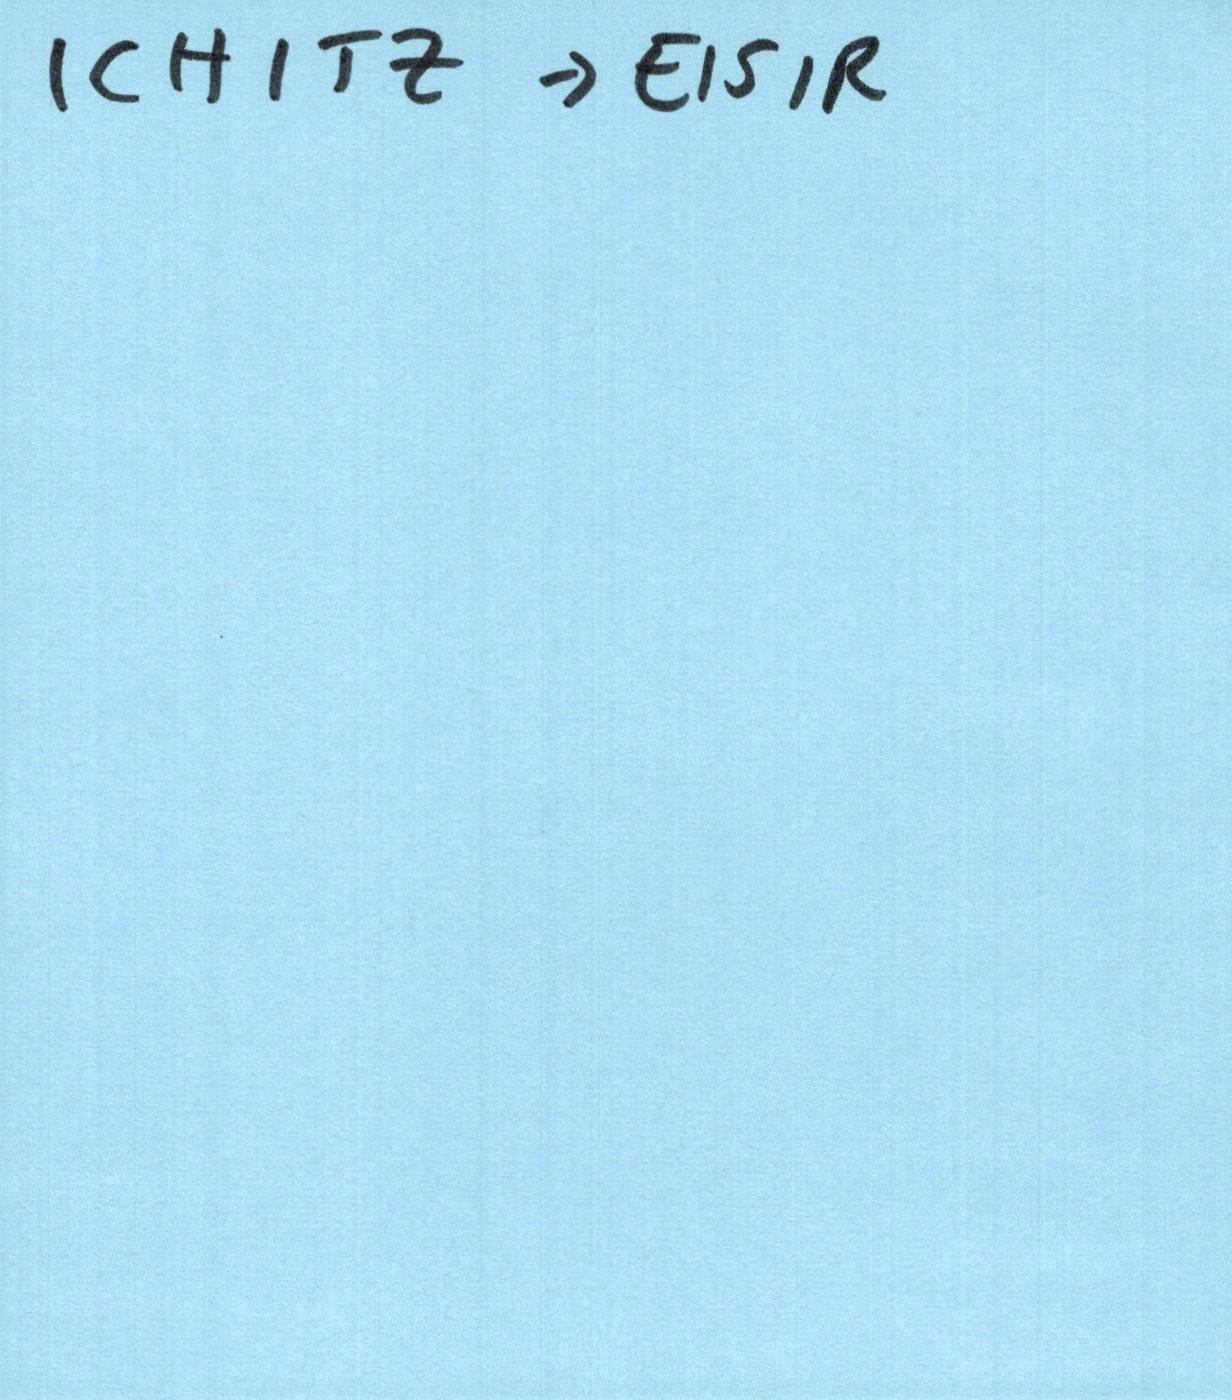 ICHITZ → EISIR